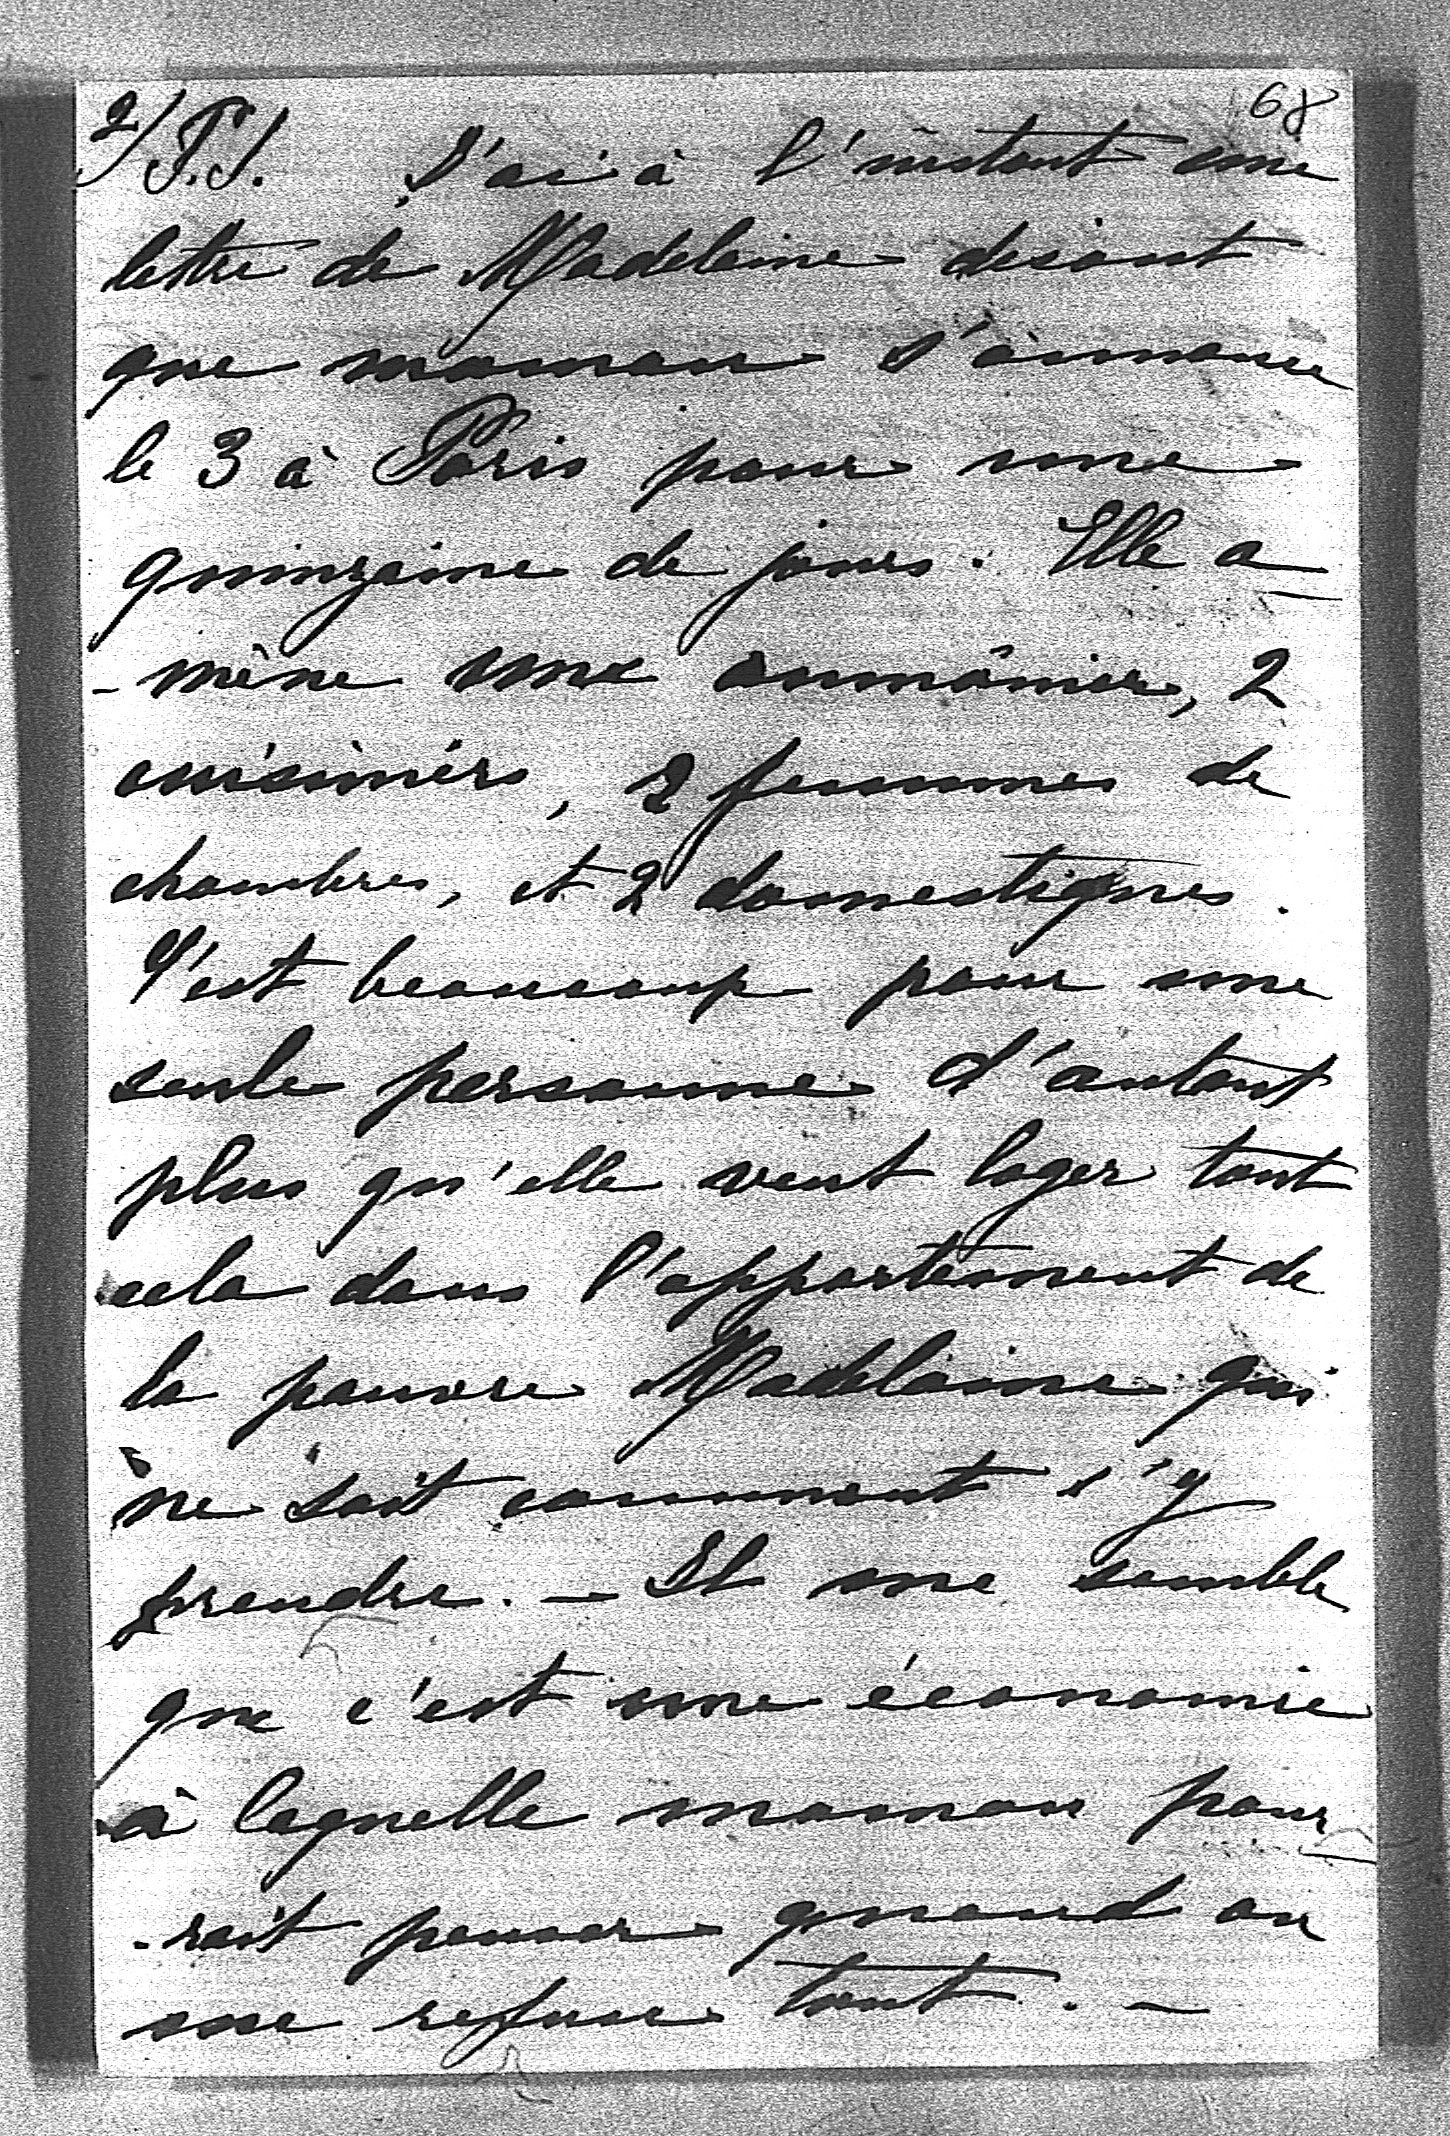 68
2/ P.S. J'ai à l'instant une
lettre de Madeleine disant
que maman s'annonce
le 3 à Paris pour une
quinzaine de jours. Elle a
-mène une aumônier, 2
cuisiniers, 2 femmes de
chambres, et 2 domestiques.
C'est beaucoup pour une
seule personne d'autant
plus qu'elle veut loger tout
cela dans l'appartement de
la pauvre Madelaine qui
ne sait comment s'y
prendre. - Il me semble
que c'est une économie
à laquelle maman pour
-rait penser quand on
me refuse tout. -